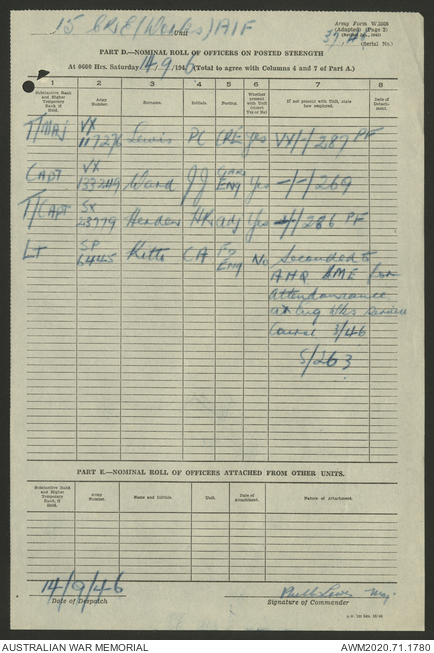 15 CRE (Works) AIF
Unit
Army Form W.3008
(Adapted) (Page 2)
(Serial No.)
PART D.—NOMINAL ROLL OF OFFICERS ON POSTED STRENGTH
At 0600 Hrs. Saturday 14/9/1946 (Total to agree with Columns 4 and 7 of Part A.)
1 2 3 4 5 6 7 8
Substantive Rank and Higher Temporary Rank, if Held. Army Number. Surname. Initials. Posting. Whether present with Unit (insert Yes or No) If not present with Unit, state how employed. Date of Detachment.
T/Maj VX 117276 Lewis PC CRE Yes VX/-/287 PF
Capt VX 133249 Ward JJ Eng Yes -/-/269
T/Capt SX 23779 HR Adj Yes /286 PF
Lt SP 6445 Kitto CA Eng No Seconded to
AHQ AME for
attendance
at Eng Wks Service
Course 3/46
S/263
PART E.—NOMINAL ROLL OF OFFICERS ATTACHED FROM OTHER UNITS.
Substantive Rank and Higher Temporary Rank, if Held. Army Number. Name and Initials. Unit. Date of Attachment. Nature of Attachment.
14/9/46
Date of Despatch
Lewis Maj
Signature of Commander
AUSTRALIAN WAR MEMORIAL
AWM2020.71.1780